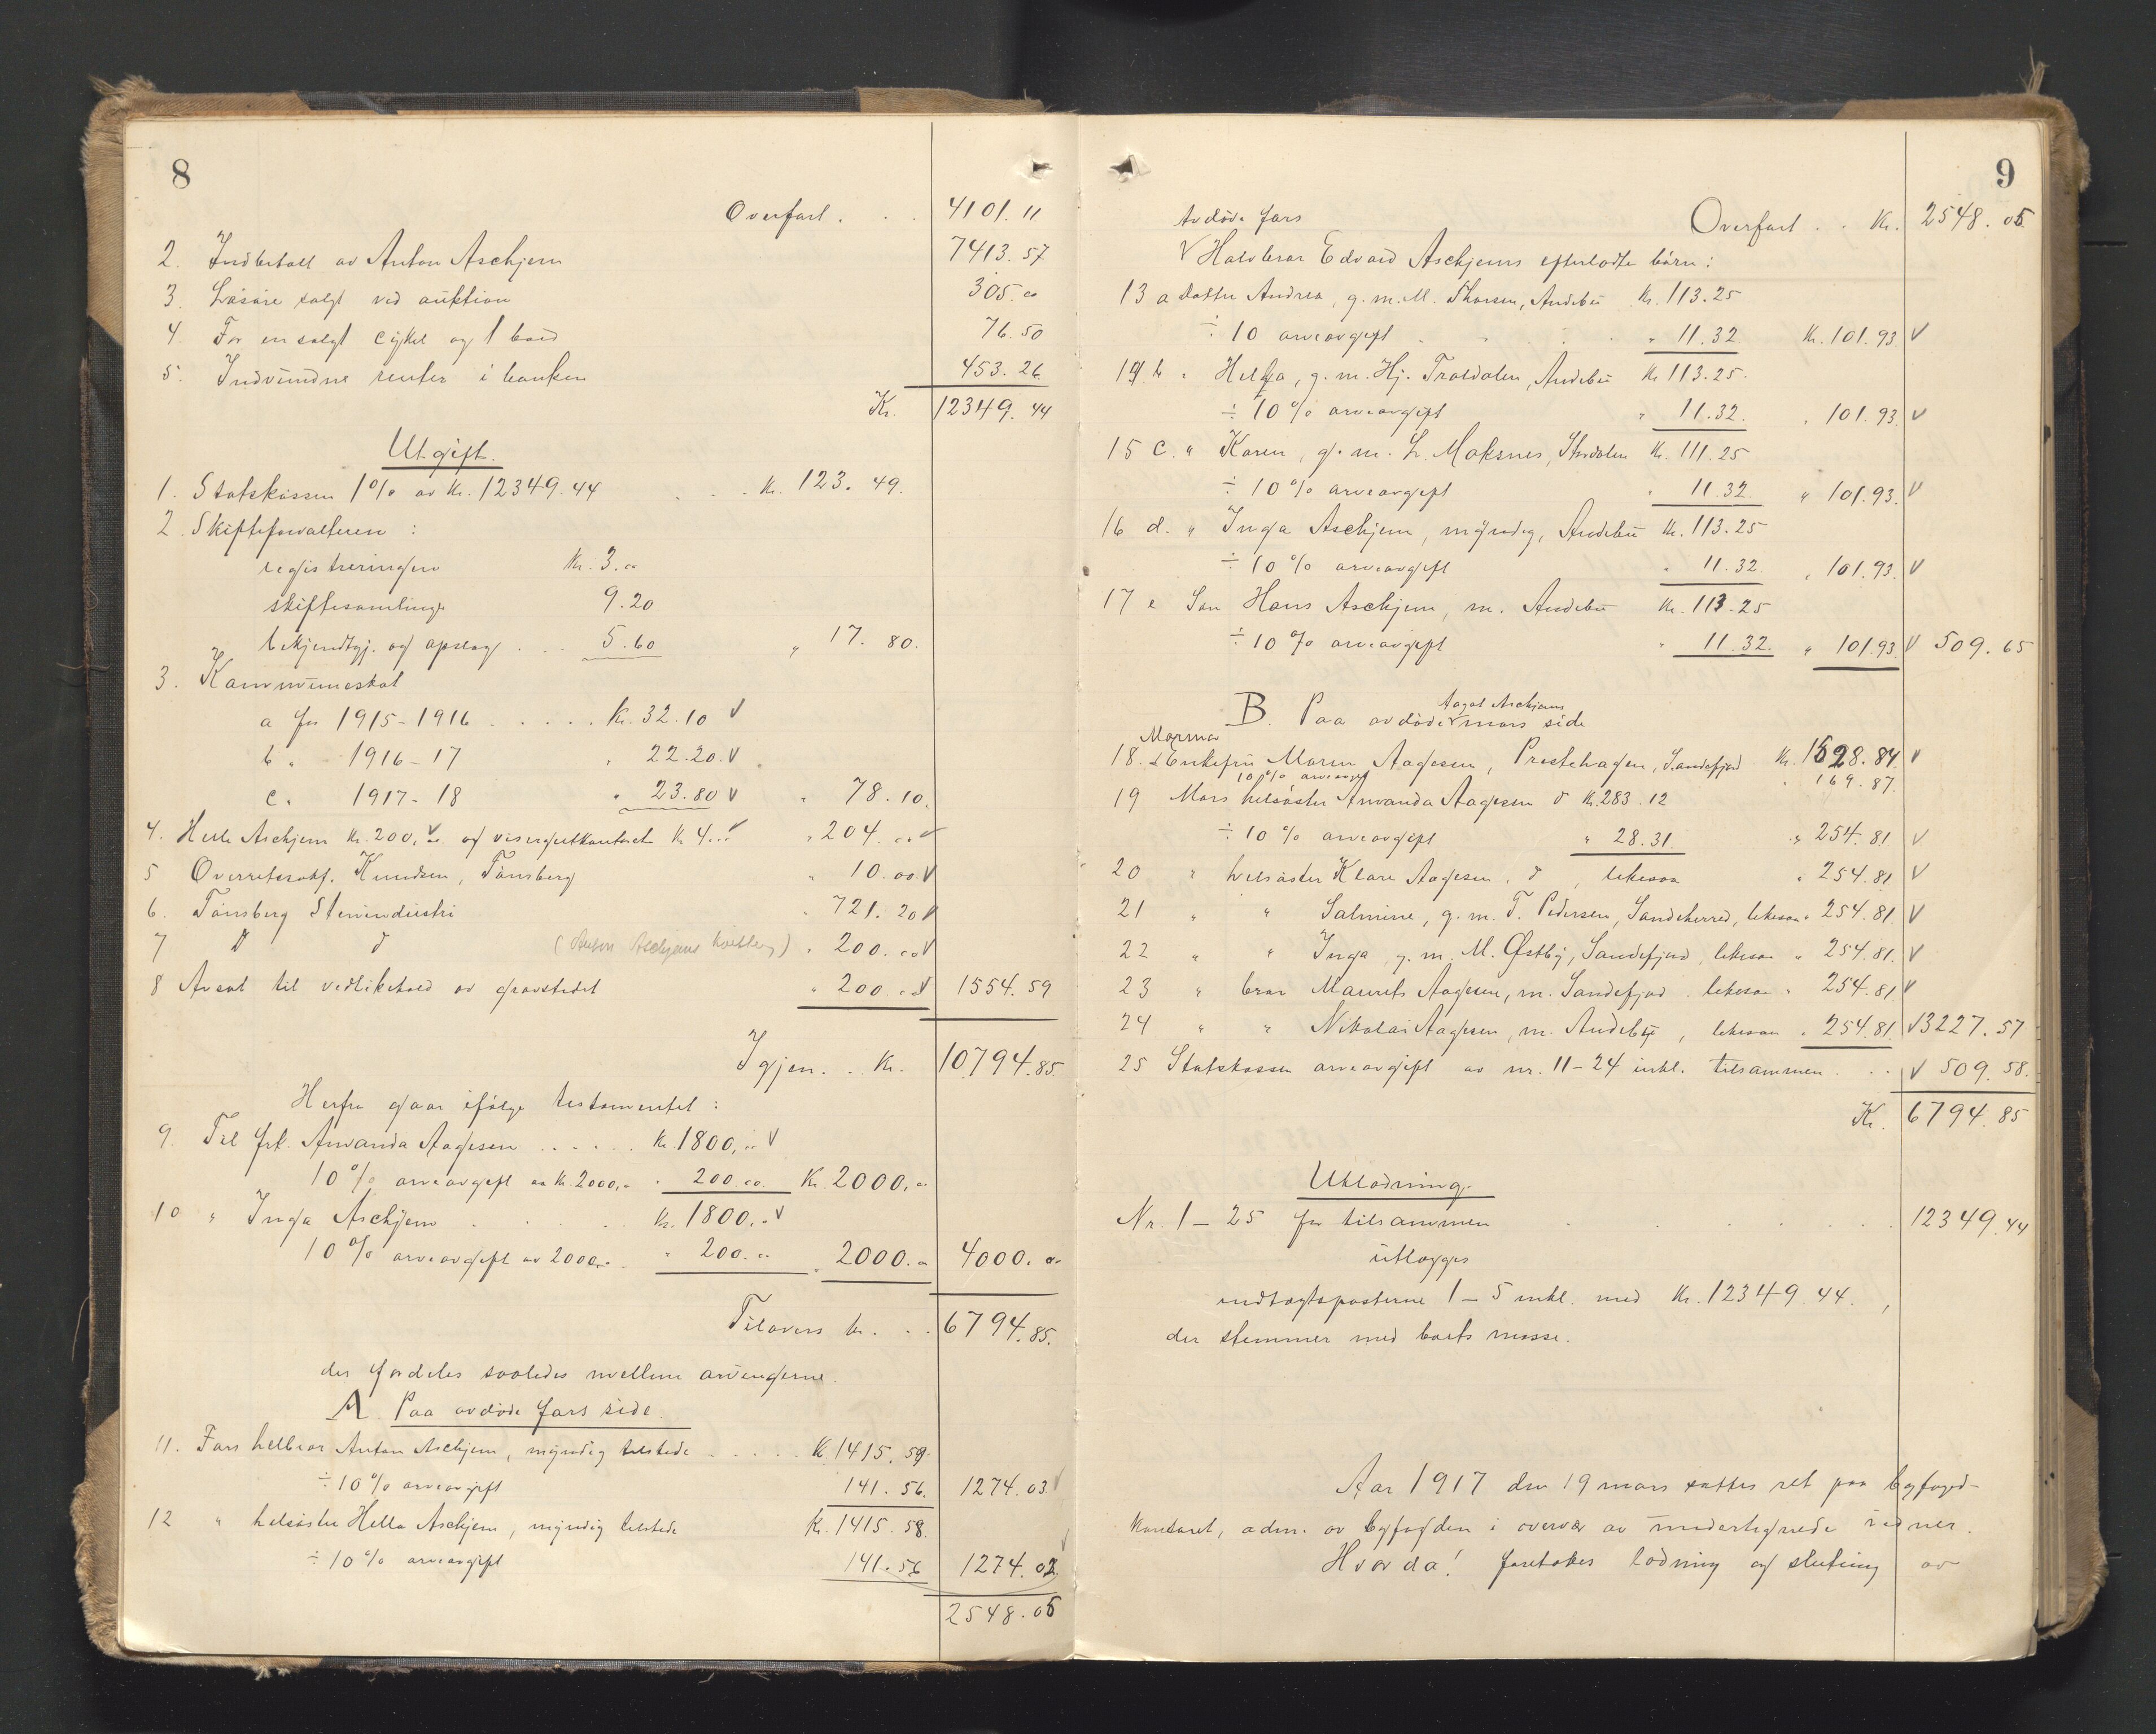 8
Overført . . . 4101.11
2. Indbetalt av Anton Aschjem 7413.57
3. Løsøre solgt ved auktion 305.00
4. For en solgt cykel og 1 baad 76.50
5. Indvundne renter i banken 453.26
Kr. 12349.44
Utgift.
1. Statskassen 1% av Kr. 12349.44 . . . Kr. 123.49.
2. Skifteforvalteren :
registreringen Kr. 3.00
skiftesamlinge 9.20
bekjendtgj. og opslag . . . 5.60 " 17.80.
3. Kommuneskat
a for 1915-1916 . . . . . Kr. 32.10 V
b " 1916-17 " 22.20. V
c. 1917-18 " 23.80 V " 78.10.
4. Helle Aschjem Kr. 200,00 og visergutkontoret Kr 4.00 " 204.00
5 Overretssakf. Knudsen, Tønsberg " 10.00. V
6. Tønsberg Stenindustri " 721.20 V
7 D D (Anton Aschjems) " 200.00 V
8 Avsat til vedlikehold av gravstedet " 200.00 V 1554.59
Igjen . . Kr. 10794.85
Herfra gaar ifølge testamentet :
9. Til frk. Amanda Aagesen . . . . . Kr. 1800,00 V
10% arveavgift av Kr. 2000,00 " 200.00. Kr. 2000,00
10 " Inga Aschjem . . . . Kr. 1800.00 V
10% arveavgift av 2000,00 . " 200.00 " 2000.00 4000.00
Tilovers kr. . . 6794.85.
der fordeles saaledes mellem arvingerne.
A. Paa avdøde fars side.
11. Fars helbror Anton Aschjem, myndig tilstede . . . . . K 1415.59.
÷ 10% arveavgift 141.56. 1274.03. V
12 " helsøster Helle Aschjem, myndig tilstede Kr. 1415.58.
÷ 10% arveavgift 141.56 1274.02.
2548.05
9
Avdøde fars Overført . . Kr. 2548.05
V Halvbror Edvard Aschjems efterladte børn :
13 a datter Andrea, g.m. M. Thorsen, Andebu Kr. 113.25
÷ 10 arveavgift . . . . " 11.32. Kr. 101.93. V
14 b " Helga, g.m. Hj. Trældalen, Andebu Kr 113.25.
÷ 10% arveavgift " 11.32. " 101.93. V
15 c. " Karen, g.m. L. Moksnes, Stordalen Kr. 111.25
÷ 10% arveavgift " 11.32. " 101.93. V
16 d. " Inga Aschjem, myndig, Andebu Kr. 113.25
÷ 10% arveavgift " 11.32. " 101.93. V
17 e Søn Hans Aschjem, m. Andebu Kr. 113.25
÷ 10% arveavgift " 11.32. " 101.93. V 509.65
Aagot Aschjems
B. Paa avdøde V mors side
Mormor
18. Enkefru Maren Aagesen, Prestehagen, Sandefjord Kr. 1528.84. V
10% arveavgift " 169.87.
19 Mors helsøster Amanda Aagesen D Kr. 283.12
÷ 10% arveavgift " 28.31. " 254.81 V
20 " helsøster Klara Aagesen, D, likesaa " 254.81 V
21 " " Salmine, g.m. T. Pedersen, Sandeherred, likesaa " 254.81. V
22 " " Inga, g.m. M. Østby, Sandefjord, likesaa " 254.81. V
23 " bror Maurits Aagesen, m. Sandefjord, likesaa " 254.81 V
24 " " Nikolai Aagesen, m. Andebu, likesaa " 254.81. V 3227.57
25 Statskassen arveavgift av nr. 11-24 inkl. tilsammen . . . V 509.58.
Kr. 6794.85
Utlodning.
Nr. 1 - 25 for tilsammen . . . . . . 12349.44
utlægges
indtægtsposterne 1 - 5 inkl. med Kr. 12349.44. ,
der stemmer med boets masse.
Aar 1917 den 19 mars sattes ret paa byfogd-
kontoret, adm. av byfogden i overvær av undertegnede vidner.
Hvorda! foretokes lodning og slutning av